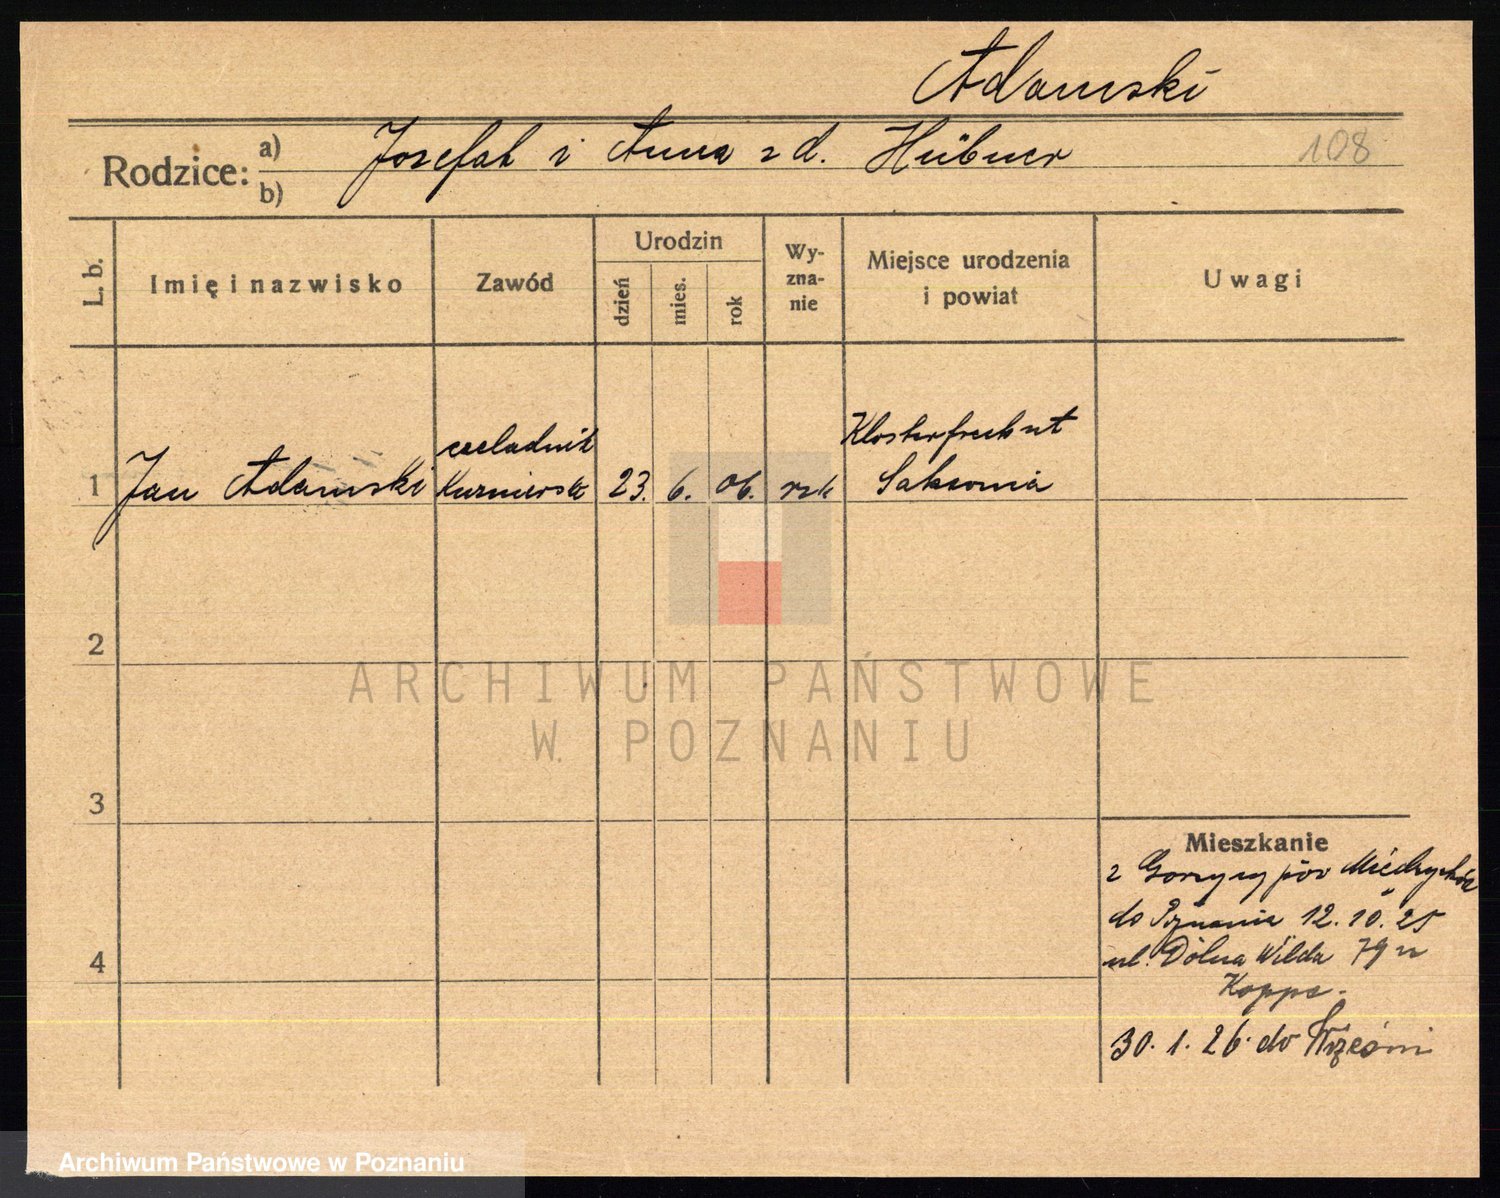 Adamski
Rodzice: a) Jozefat i Anna z d. Hübner 108
b)
L. b. Imię i nazwisko Zawód Urodzin Wy-zna-nie Miejsce urodzenia i powiat Uwagi
dzień mies. rok
czeladnik Klosterfreiheit
1 Jan Adamski 23. 6. 06. rzk Saksonia
2
3
4
Mieszkanie
z Gorzycy pow Międzychód
do Poznania 12.10.25
ul. Dolna Wilda 79 u
Koppe.
30.1.26. do Wrześni
ARCHIWUM PAŃSTWOWE
W POZNANIU
Archiwum Państwowe w Poznaniu